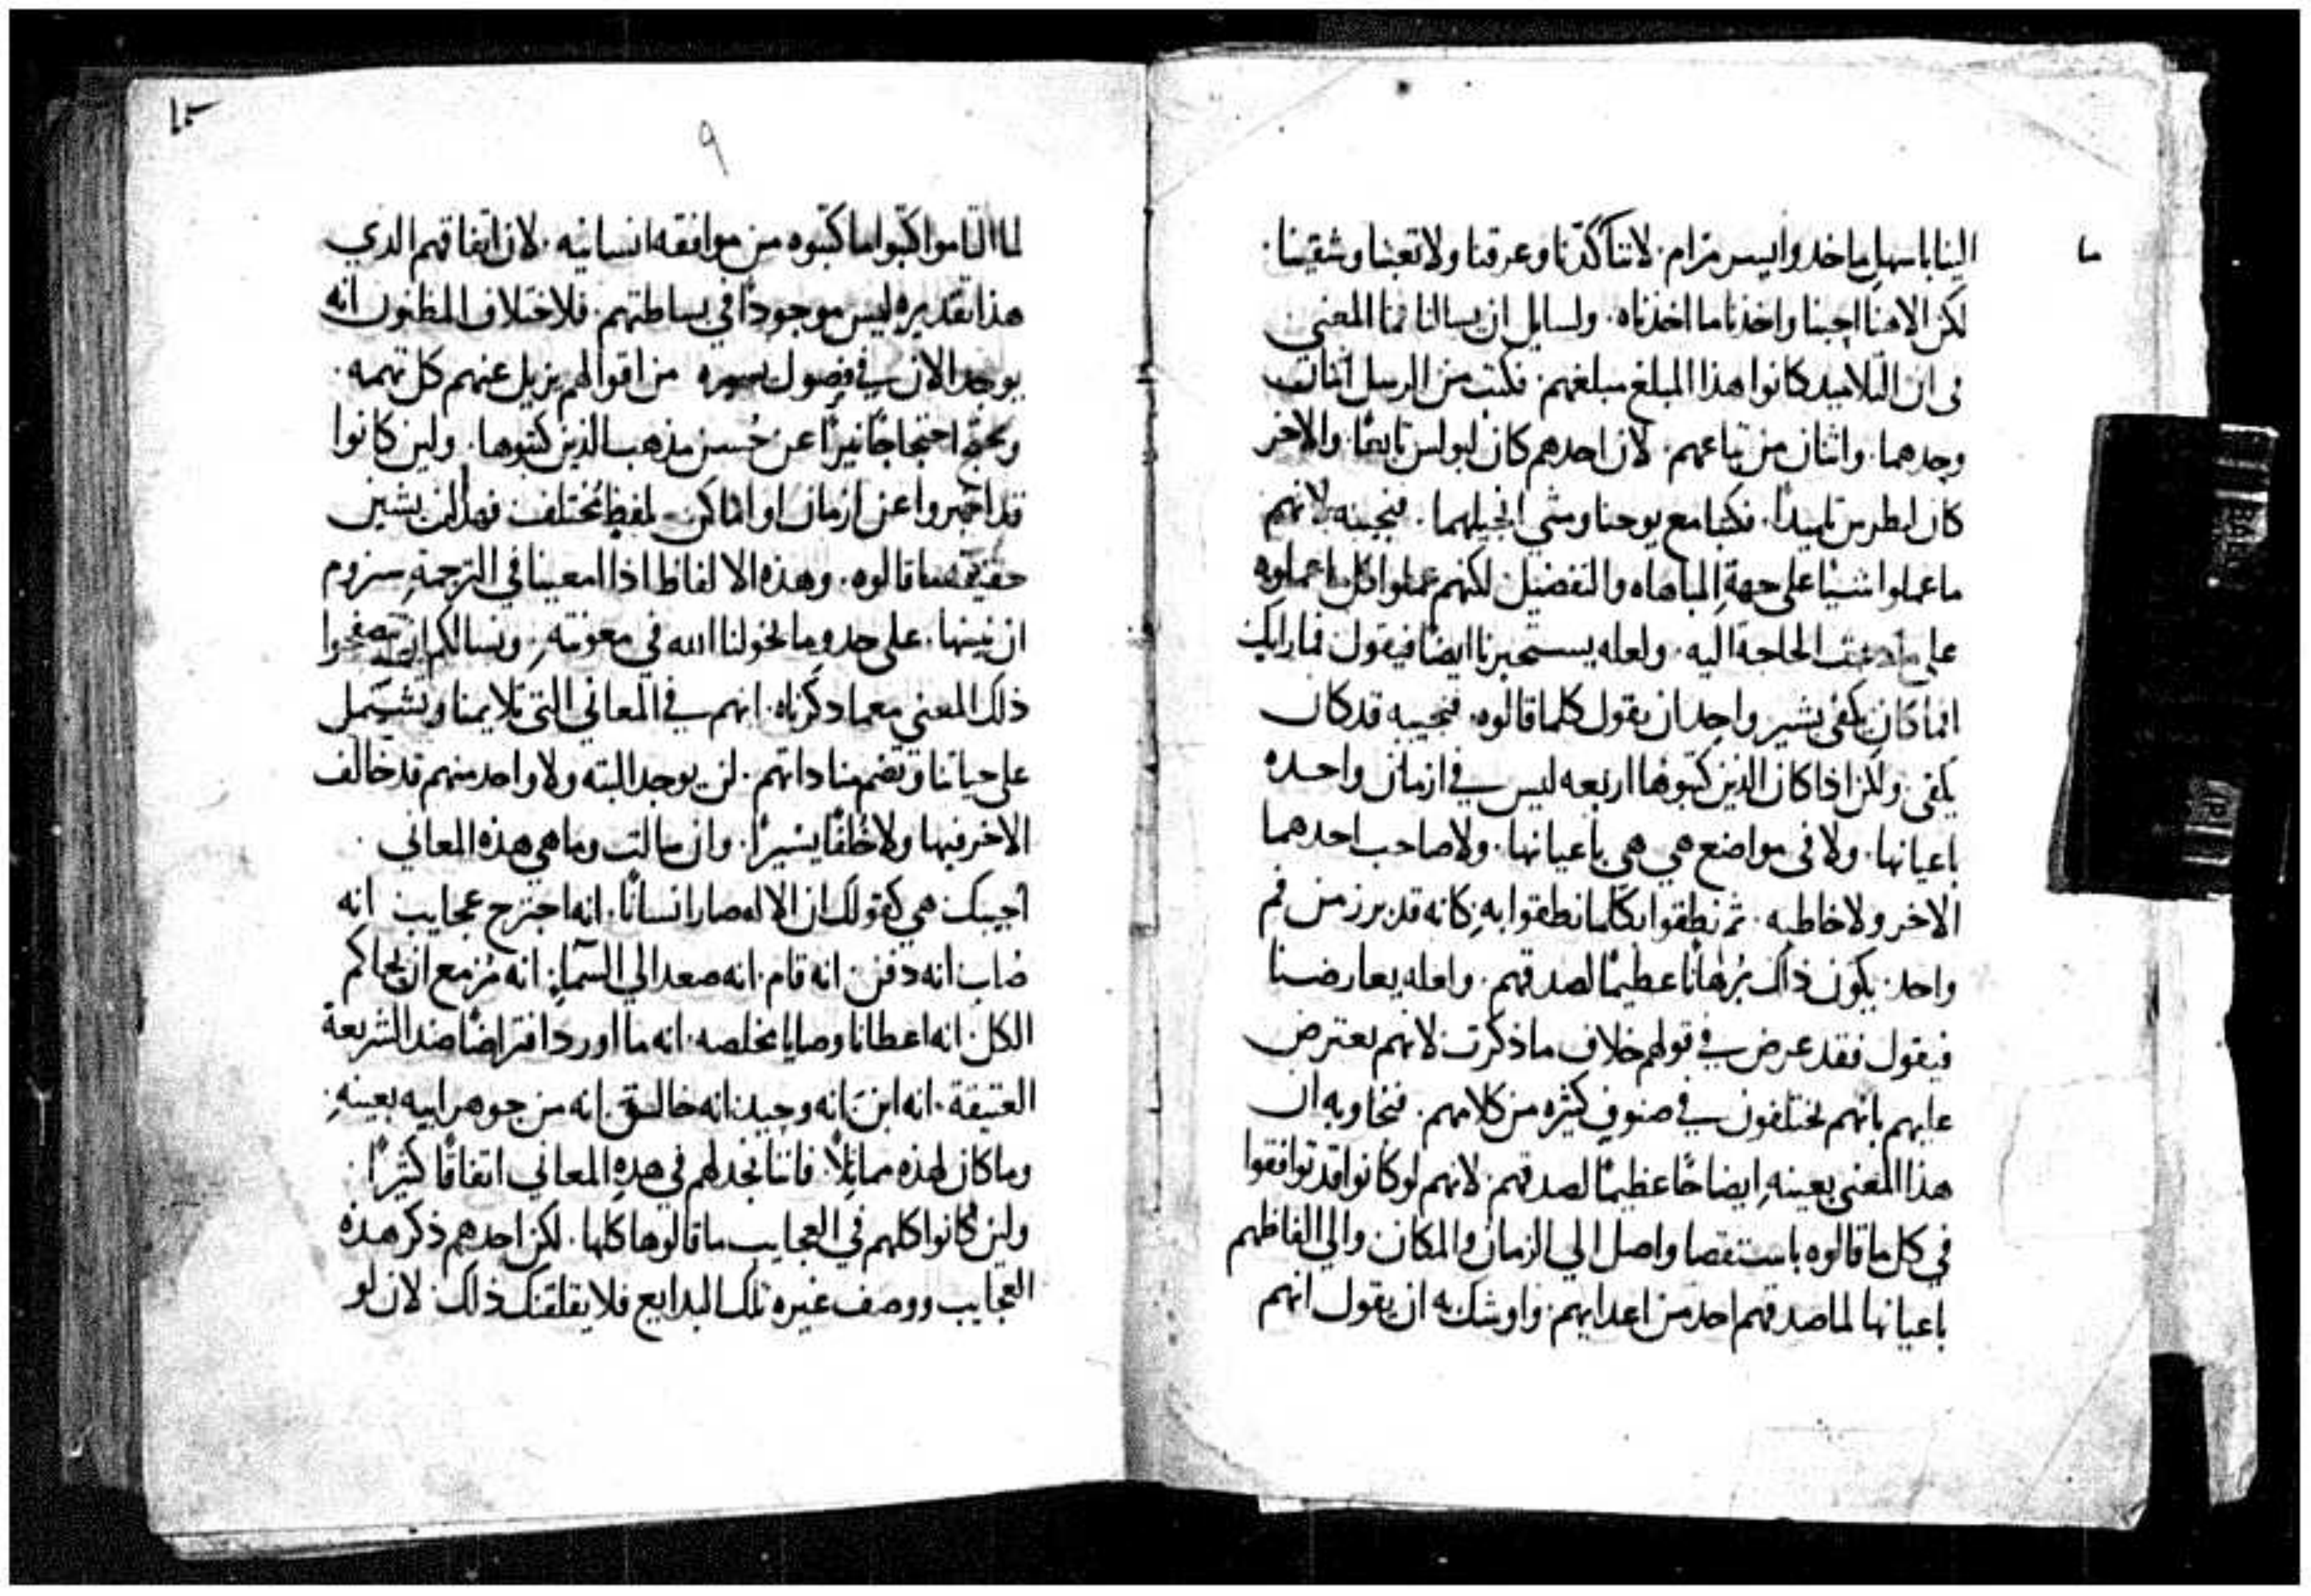 الينا باسهل ماخد وايسر مرام. لاننا كدنا وعرقنا ولا تعبنا وشقينا.
لكن الاهنا اجبنا واخذنا ما اخذناه. ولسايل ان يسالنا فما المعني
في ان التلاميد كانوا هذا المبلغ مبلغهم. فكتب من الرسل اثنان
وحدهما. واثنان من تباعهم. لان احدهم كان لبولس تابعًا. والاخر
كان لبطرس تلميدًا. فكتبا مع يوحنا ومتي انجيلهما. فنجيبه لانهم
ما عملوا شيًا علي جهةِ المباهاه والتفضيل لكنهم عملوا كل ما عملوه
علي ما دعت الحاجة اليه. ولعله يستخبرنا ايضًا فيقول فما رايك
افما كان يكفي بشير واحد ان يقول كلما قالوه. فنجيبه قد كان
يكفي. ولكن اذا كان الذين كتبوها اربعه ليس في ازمان واحده
باعيانها. ولا في مواضع هي هي باعيانها. ولا صاحب احدهما
الاخر ولا خاطبه. ثم نطقوا بكلما نطقوا بهِ كانه قد برز من فم
واحد. يكون ذاك بُرهانًا عظيمًا لصدقهم. ولعله يعارضنا
فيقول فقد عرض في قولهم خلاف ما ذكرت لانهم يعترض
عليهم بانهم يختلفون في صنوفٍ كثيره من كلامهم. فنجاوبه ان
هذا المعني بعينهِ ايضاحًا عظيمًا لصدقهم. لانهم لو كانوا قد توافقوا
في كل ما قالوه باستقصا واصل الي الزمان والمكان والي الفاظهم
باعيانها لما صدقهم احد من اعدايهم. واوشك به ان يقول انهم
٩
لما التاموا كتبوا ما كتبوه من موافقه انسانيه. لان اتفاقهم الدي
هذا تقديره ليس موجودًا في بساطتهم. فلاختلاف المظنون انه
يوجد الان في فصول يسيره من اقوالهم يزيل عنهم كل تهمه.
ويحتج احتجاجًا نيرًا عن حُسن مذهب الذين كتبوها. ولين كانوا
قد اخبروا عن ازمان او اماكن بلفظٍ مختلف فهدا لن يشين
حقيقة ما قالوه. وهذه الالفاظ اذا امعينا في الترجمةِ سنروم
ان نبينها. علي حدوِ ما يخولنا الله في معونتهِ. ونسالكم ان تتصفحوا
ذلك المعني مع ما دكرناه. انهم في المعاني التي تلايمنا ويشتمل
علي حياتنا وتضم مناداتهم. لن يوجد البته ولا واحد منهم قد خالف
الاخر فيها ولا خلفًا يسيرًا. وان سالت وما هي هذه المعاني
اجيبك هي كقولك ان الاله صار انسانًا. انه اجترح عجايب انه
صلب انه دفن. انه قام. انه صعد الي السمآ. انه مُزمع ان يحاكم
الكل. انه اعطانا وصايا مخلصه. انه ما اورد افتراضًا ضد الشريعة
العتيقة. انه ابن. انه وحيد. انه خالق. انه من جوهر ابيه بعينهِ.
وما كان لهذه مماثلاً. فاننا نجد لهم في هدهِ المعاني اتفاقًا كثيرًا.
ولين كانوا كلهم في العجايب ما قالوها كلها. لكن احدهم ذكر هذه
العجايب ووصف غيره تلك البدايع فلا يقلقنك ذلك. لان لو